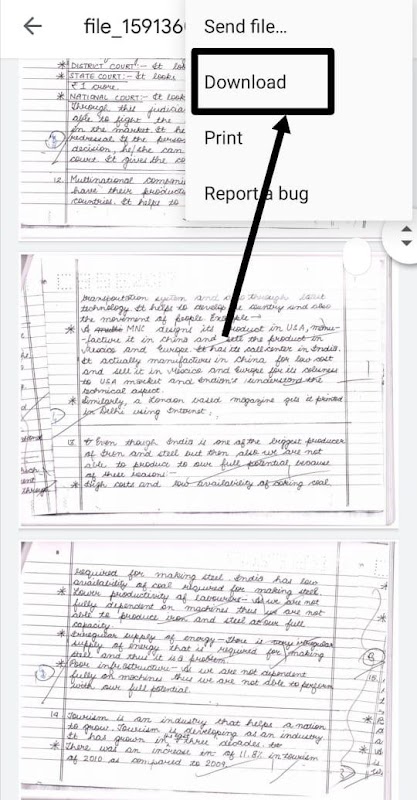 file_159136
Send file...
Download
Print
Report a bug
* DISTRICT COURT:- It
* STATE COURT:- It looks
₹ 1 crore.
* NATIONAL COURT:- It look
Through the
able to fight the
in the market. It he
redressal if the person
decision, he/she can
court. It gives the co
12. Multinational compani
have their product
countries. It helps to
transportation system and also through latest
technology. It helps to develop the country and also
the movement of people. Example →
* A MNC designs its product in USA, manu-
facture it in China and sell the product in
Mexico and Europe. It has its call center in India.
It actually manufacture in China for low cost
and sell it in Mexico and Europe for its closeness
to USA market and Indians understand the
technical aspect.
* Similarly, a London based magazine gets is printed
in Delhi using Internet.
13. Even though India is one of the biggest producer
of Iron and steel but then also we are not
able to produce to our full potential because
of these reasons:-
* High costs and low availability of coking coal
required for making steel. India has low
availability of coal required for making steel.
* Lower productivity of labourers- As we are not
fully dependent on machines thus we are not
able to produce iron and steel at our full
capacity.
* Irregular supply of energy - There is irregular
supply of energy that is required for making
steel and thus it is a problem.
* Poor infrastructure:- As we are not dependent
fully on machines thus we are not able to perform
with our full potential.
14. Tourism is an industry that helps a nation
to grow. Tourism is developing as an industry
It has grown in last three decades.
* There was an increase in of 11.8% in tourism
of 2010 as compared to 2009.